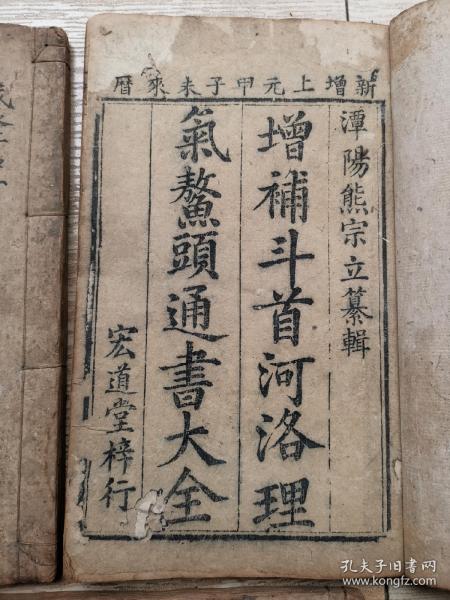 新增上元甲子未來曆
潭陽熊宗立纂輯
增補斗首河洛理
氣鰲頭通書大全
宏道堂梓行
孔夫子旧书网
www.kongfz.com